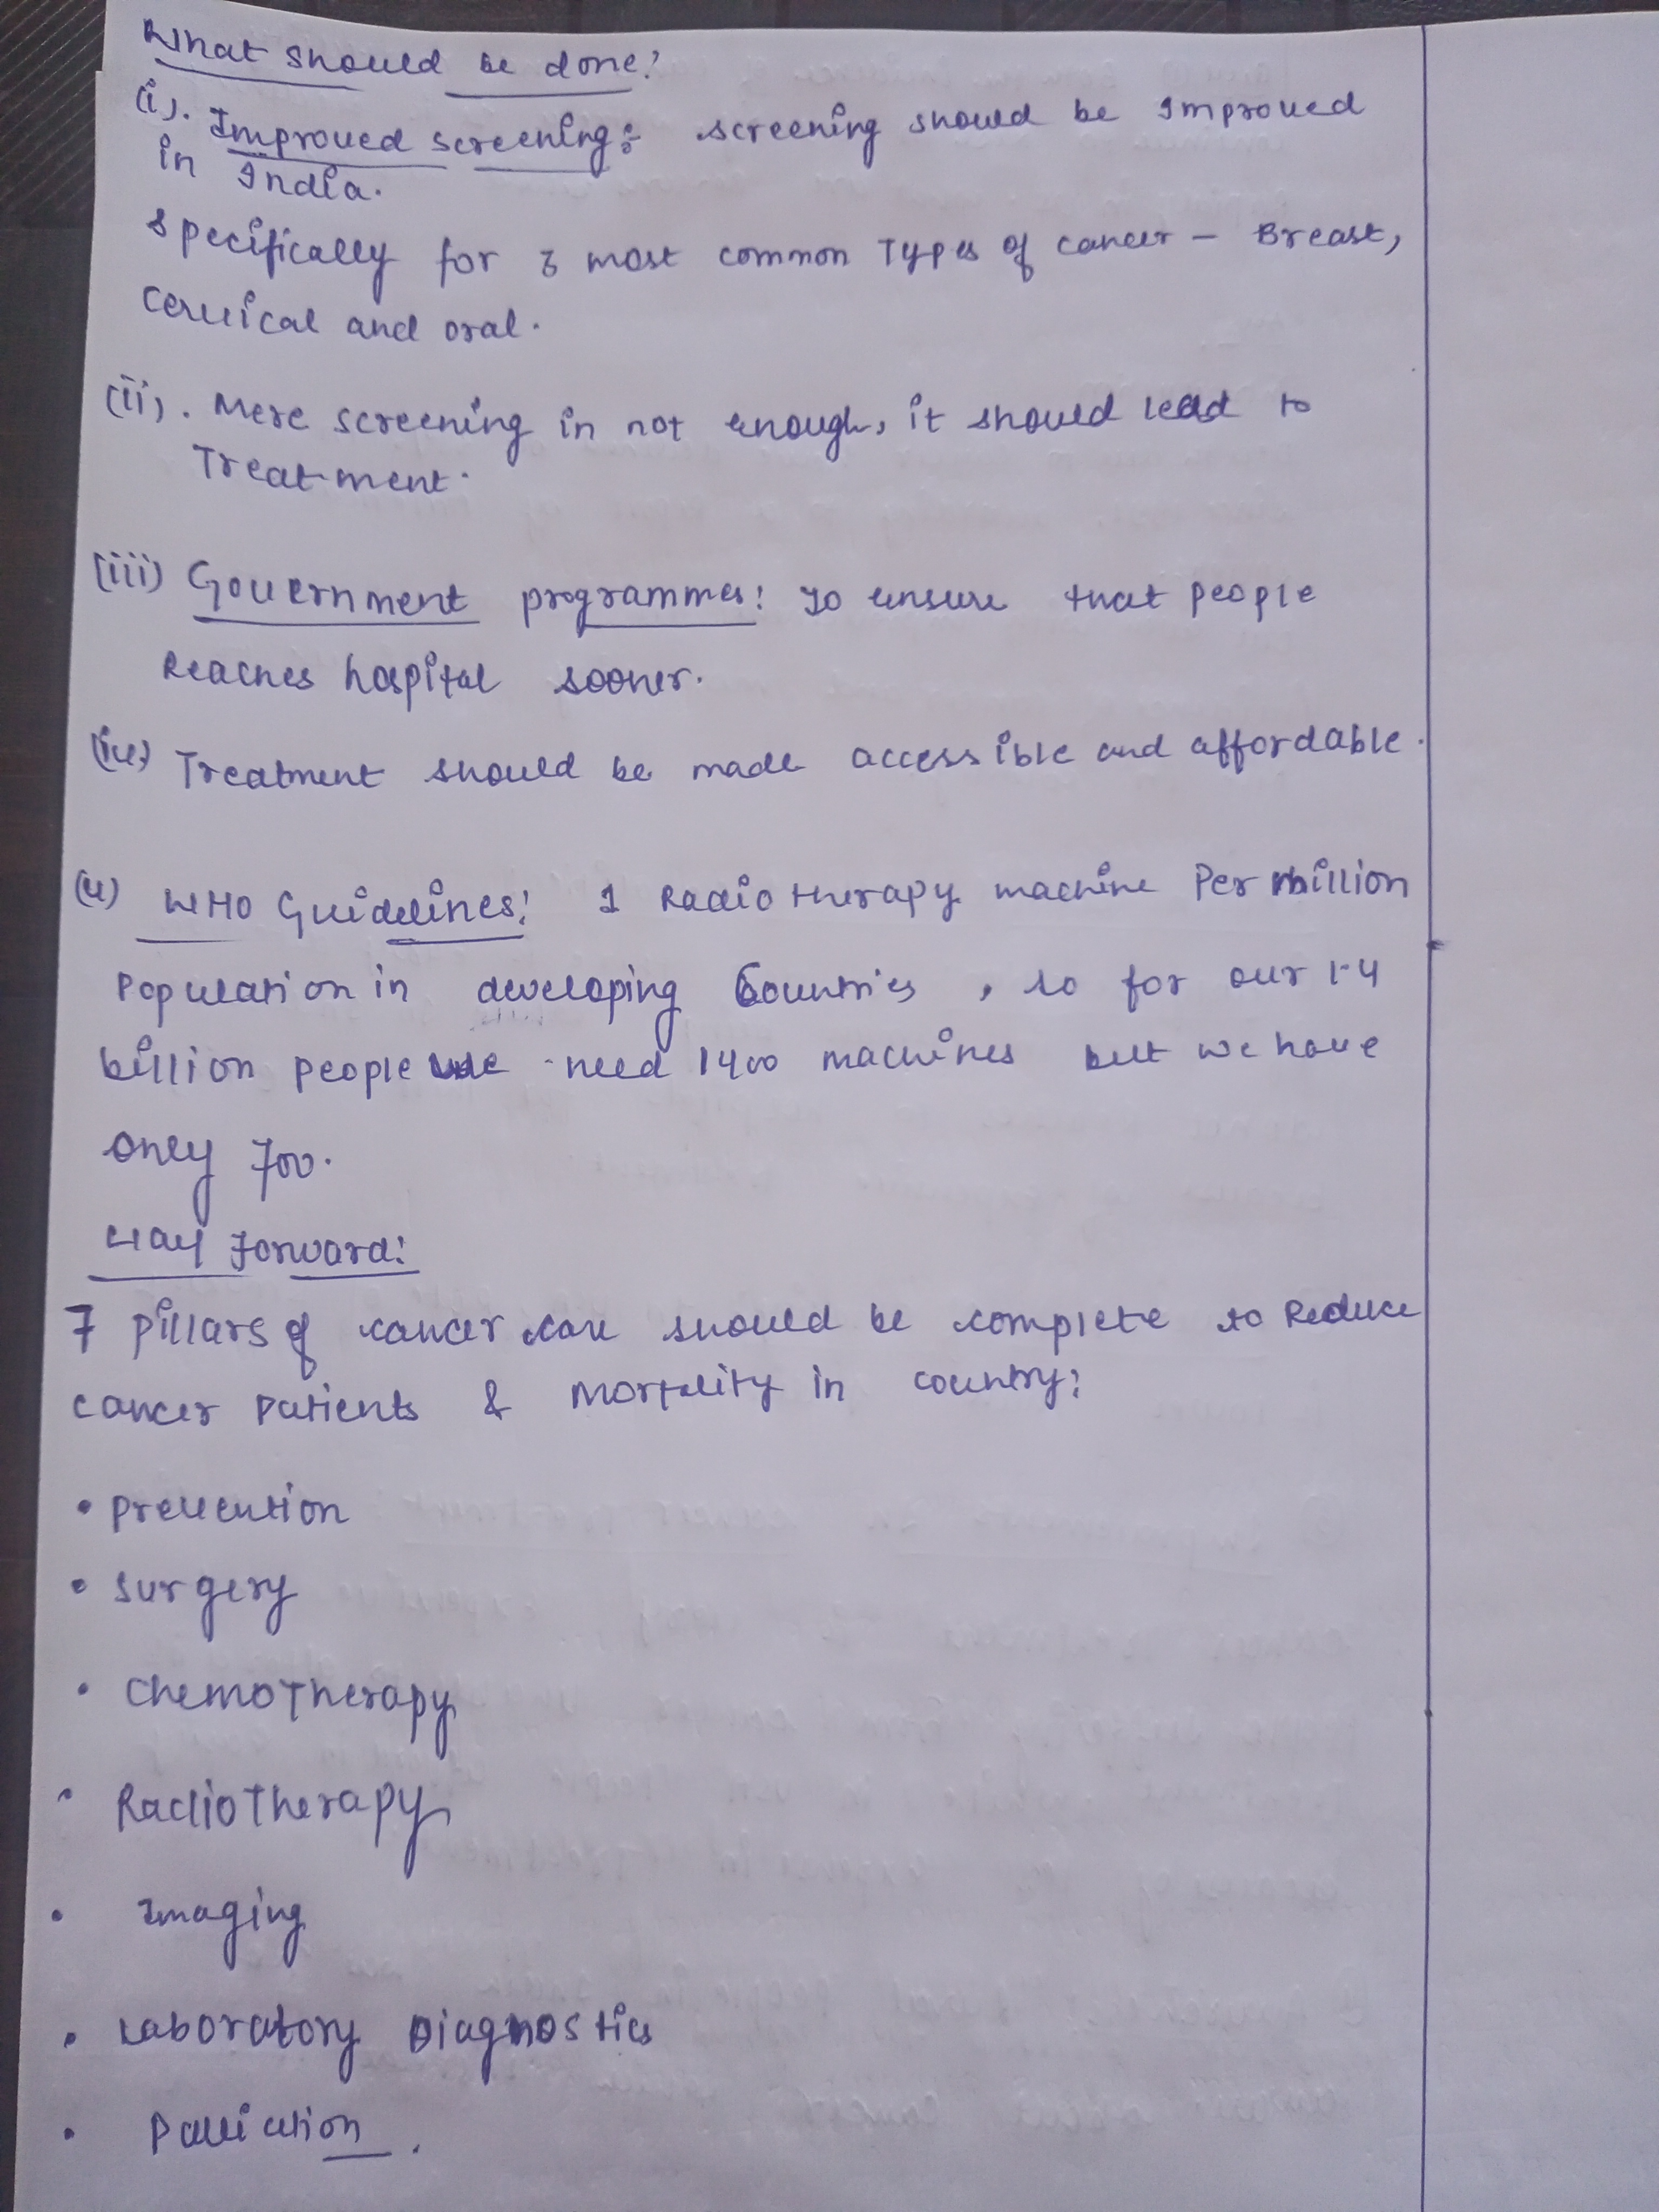 What should be done?
(i). Improved screening: screening should be Improved
in India.
specifically for 3 most common Types of cancer - Breast,
Cervical and oral.
(ii). Mere screening in not enough, it should lead to
Treatment.
(iii) Government programmes: To ensure that people
Reaches hospital sooner.
(iv) Treatment should be made accessible and affordable.
(v) WHO Guidelines: 1 Radiotherapy machine Per million
Population in developing Countries, so for our 1.4
billion people we need 1400 machines but we have
only 700.
Way Forward:
7 pillars of cancer care should be complete to Reduce
cancer patients & mortality in country:
• prevention
• surgery
• ChemoTherapy
• RadioTherapy
• Imaging
• Laboratory Diagnostics
• Palliation.